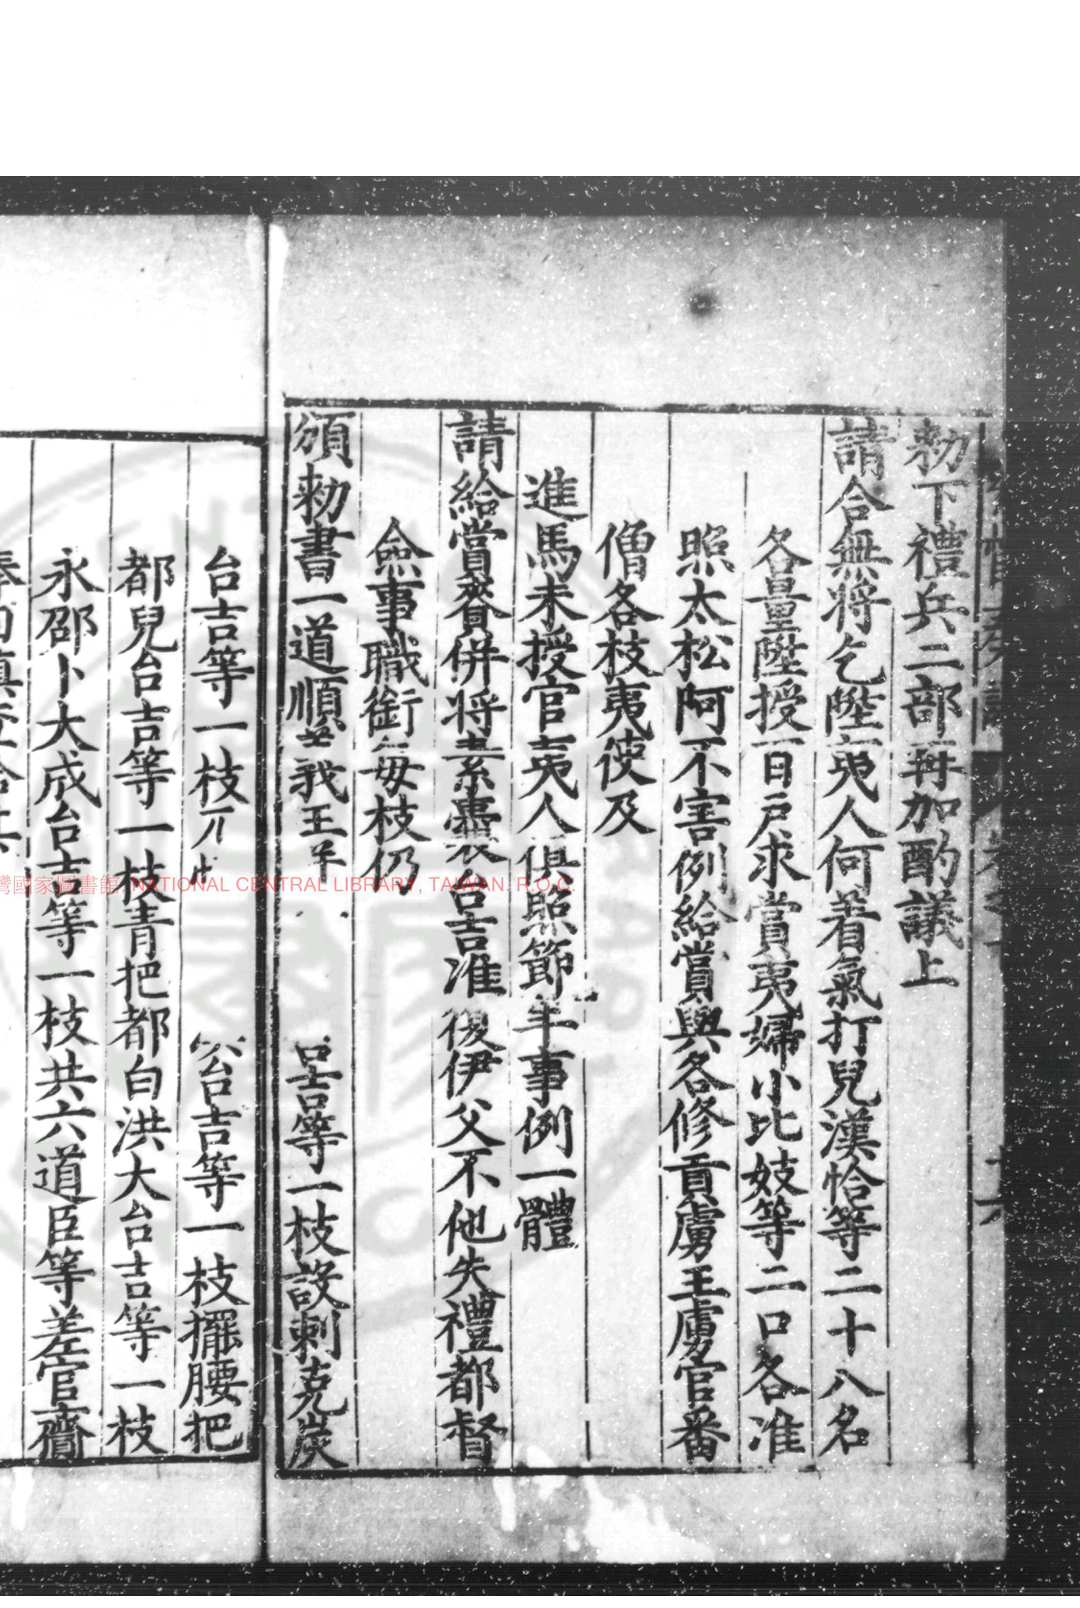 勑下禮兵二部再加酌議上
請合無將乞陞夷人何着氣打兒漢恰等二十八名
各量陞授百戶求賞夷婦小比妓等二口各准
照太松阿不害例給賞與各修貢虜王虜官番
僧各枝夷使及
進馬未授官夷人俱照節年事例一體
請給賞賚併將素囊台吉准復伊父不他失禮都督
僉事職銜每枝仍
頒勑書一道順義王
台吉等一枝設剌克炭
台吉等一枝
台吉等一枝擺腰把
都兒台吉等一枝青把都白洪大台吉等一枝
永邵卜大成台吉等一枝共六道臣等差官齎
臺灣國家圖書館 NATIONAL CENTRAL LIBRARY, TAIWAN. R.O.C.